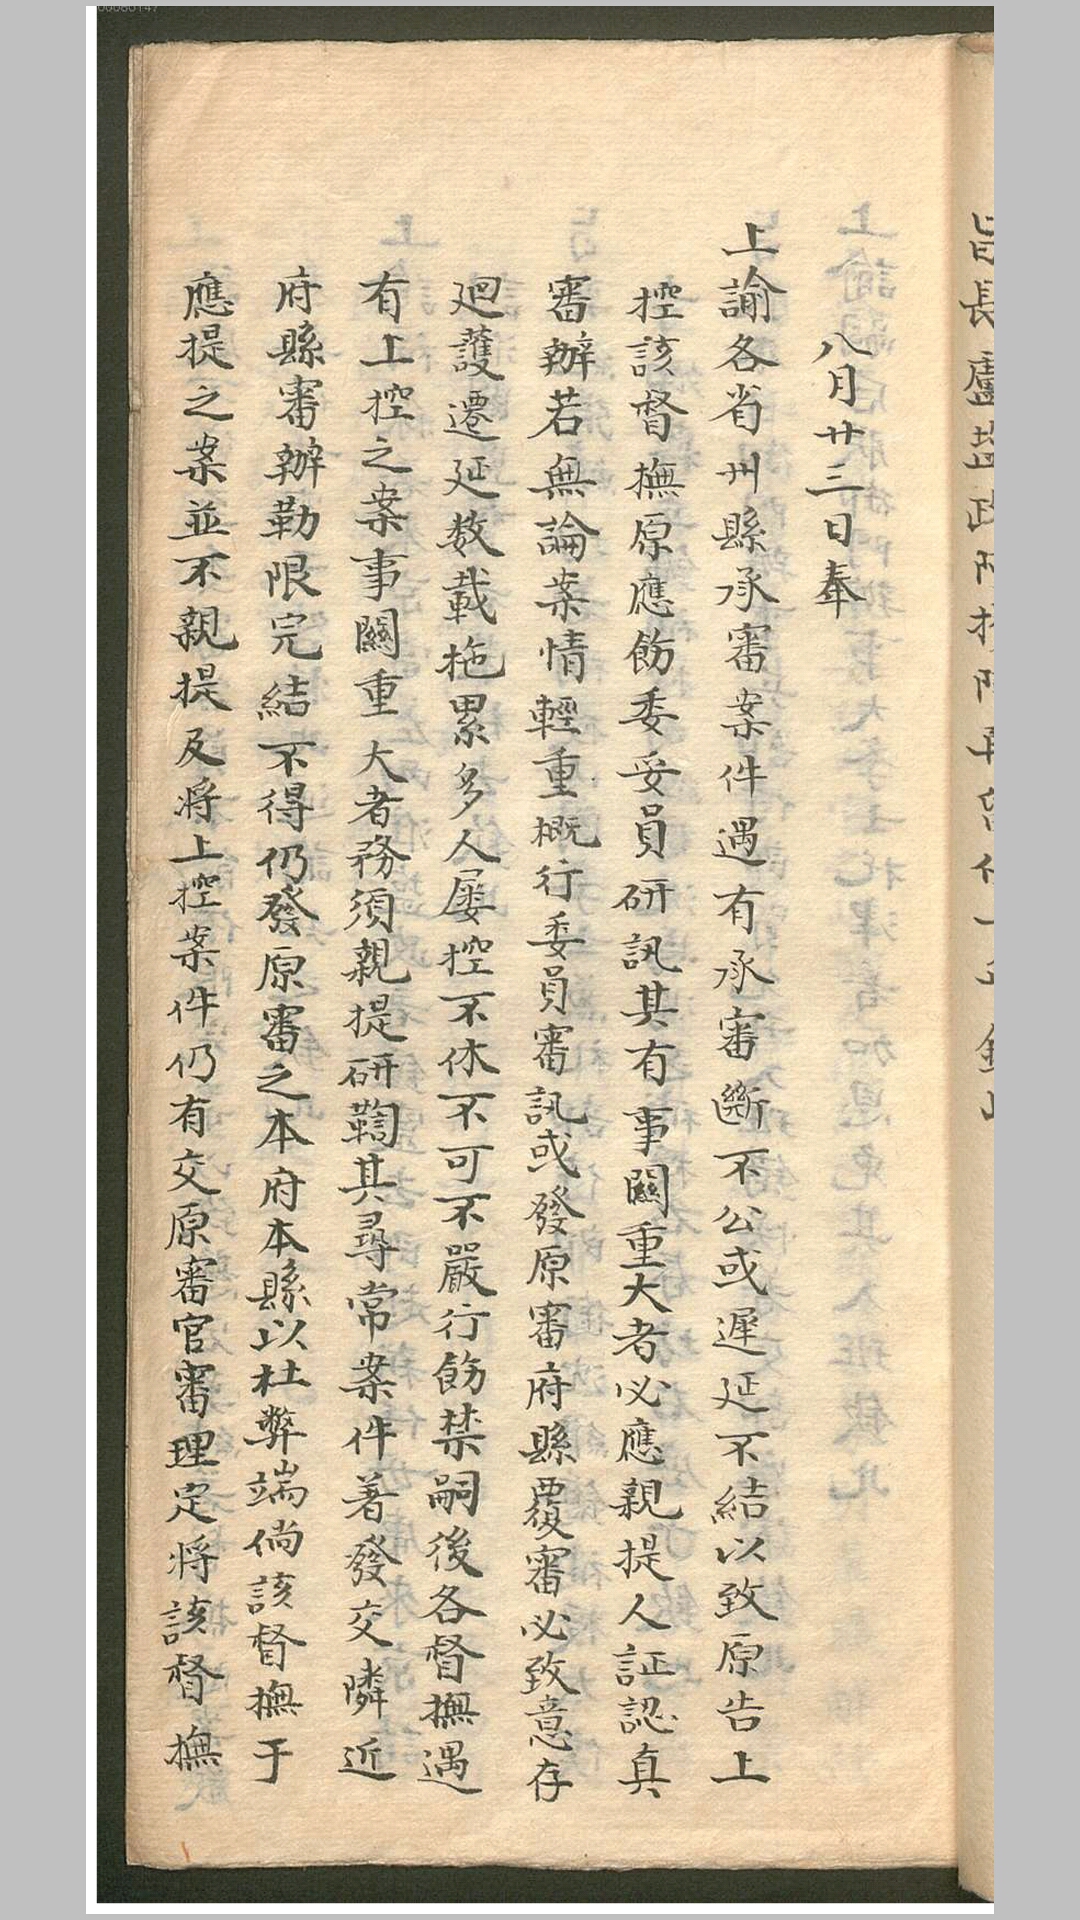 八月廿三日奉
上諭各省州縣承審案件遇有承審斷不公或遲延不結以致原告上
控該督撫原應飭委妥員研訊其有事關重大者必應親提人証認真
審辦若無論案情輕重概行委員審訊或發原審府縣覆審必致意存
廻護遷延数載拖累多人屡控不休不可不嚴行飭禁嗣後各督撫遇
有上控之案事關重大者務須親提研鞫其尋常案件著發交隣近
府縣審辦勒限完結不得仍發原審之本府本縣以杜弊端倘該督撫于
應提之案並不親提及將上控案件仍有交原審官審理定將該督撫